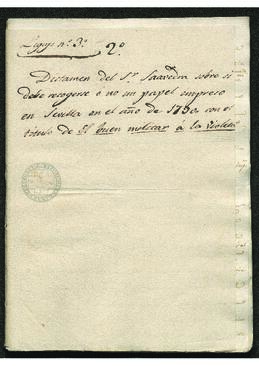 Legajo nº 3º
2º
Dictamen del Sr. Saavedra sobre si
debe recogerse o no un papel impreso
en Sevilla en el año de 1790 con el
título de El buen militar à la violeta